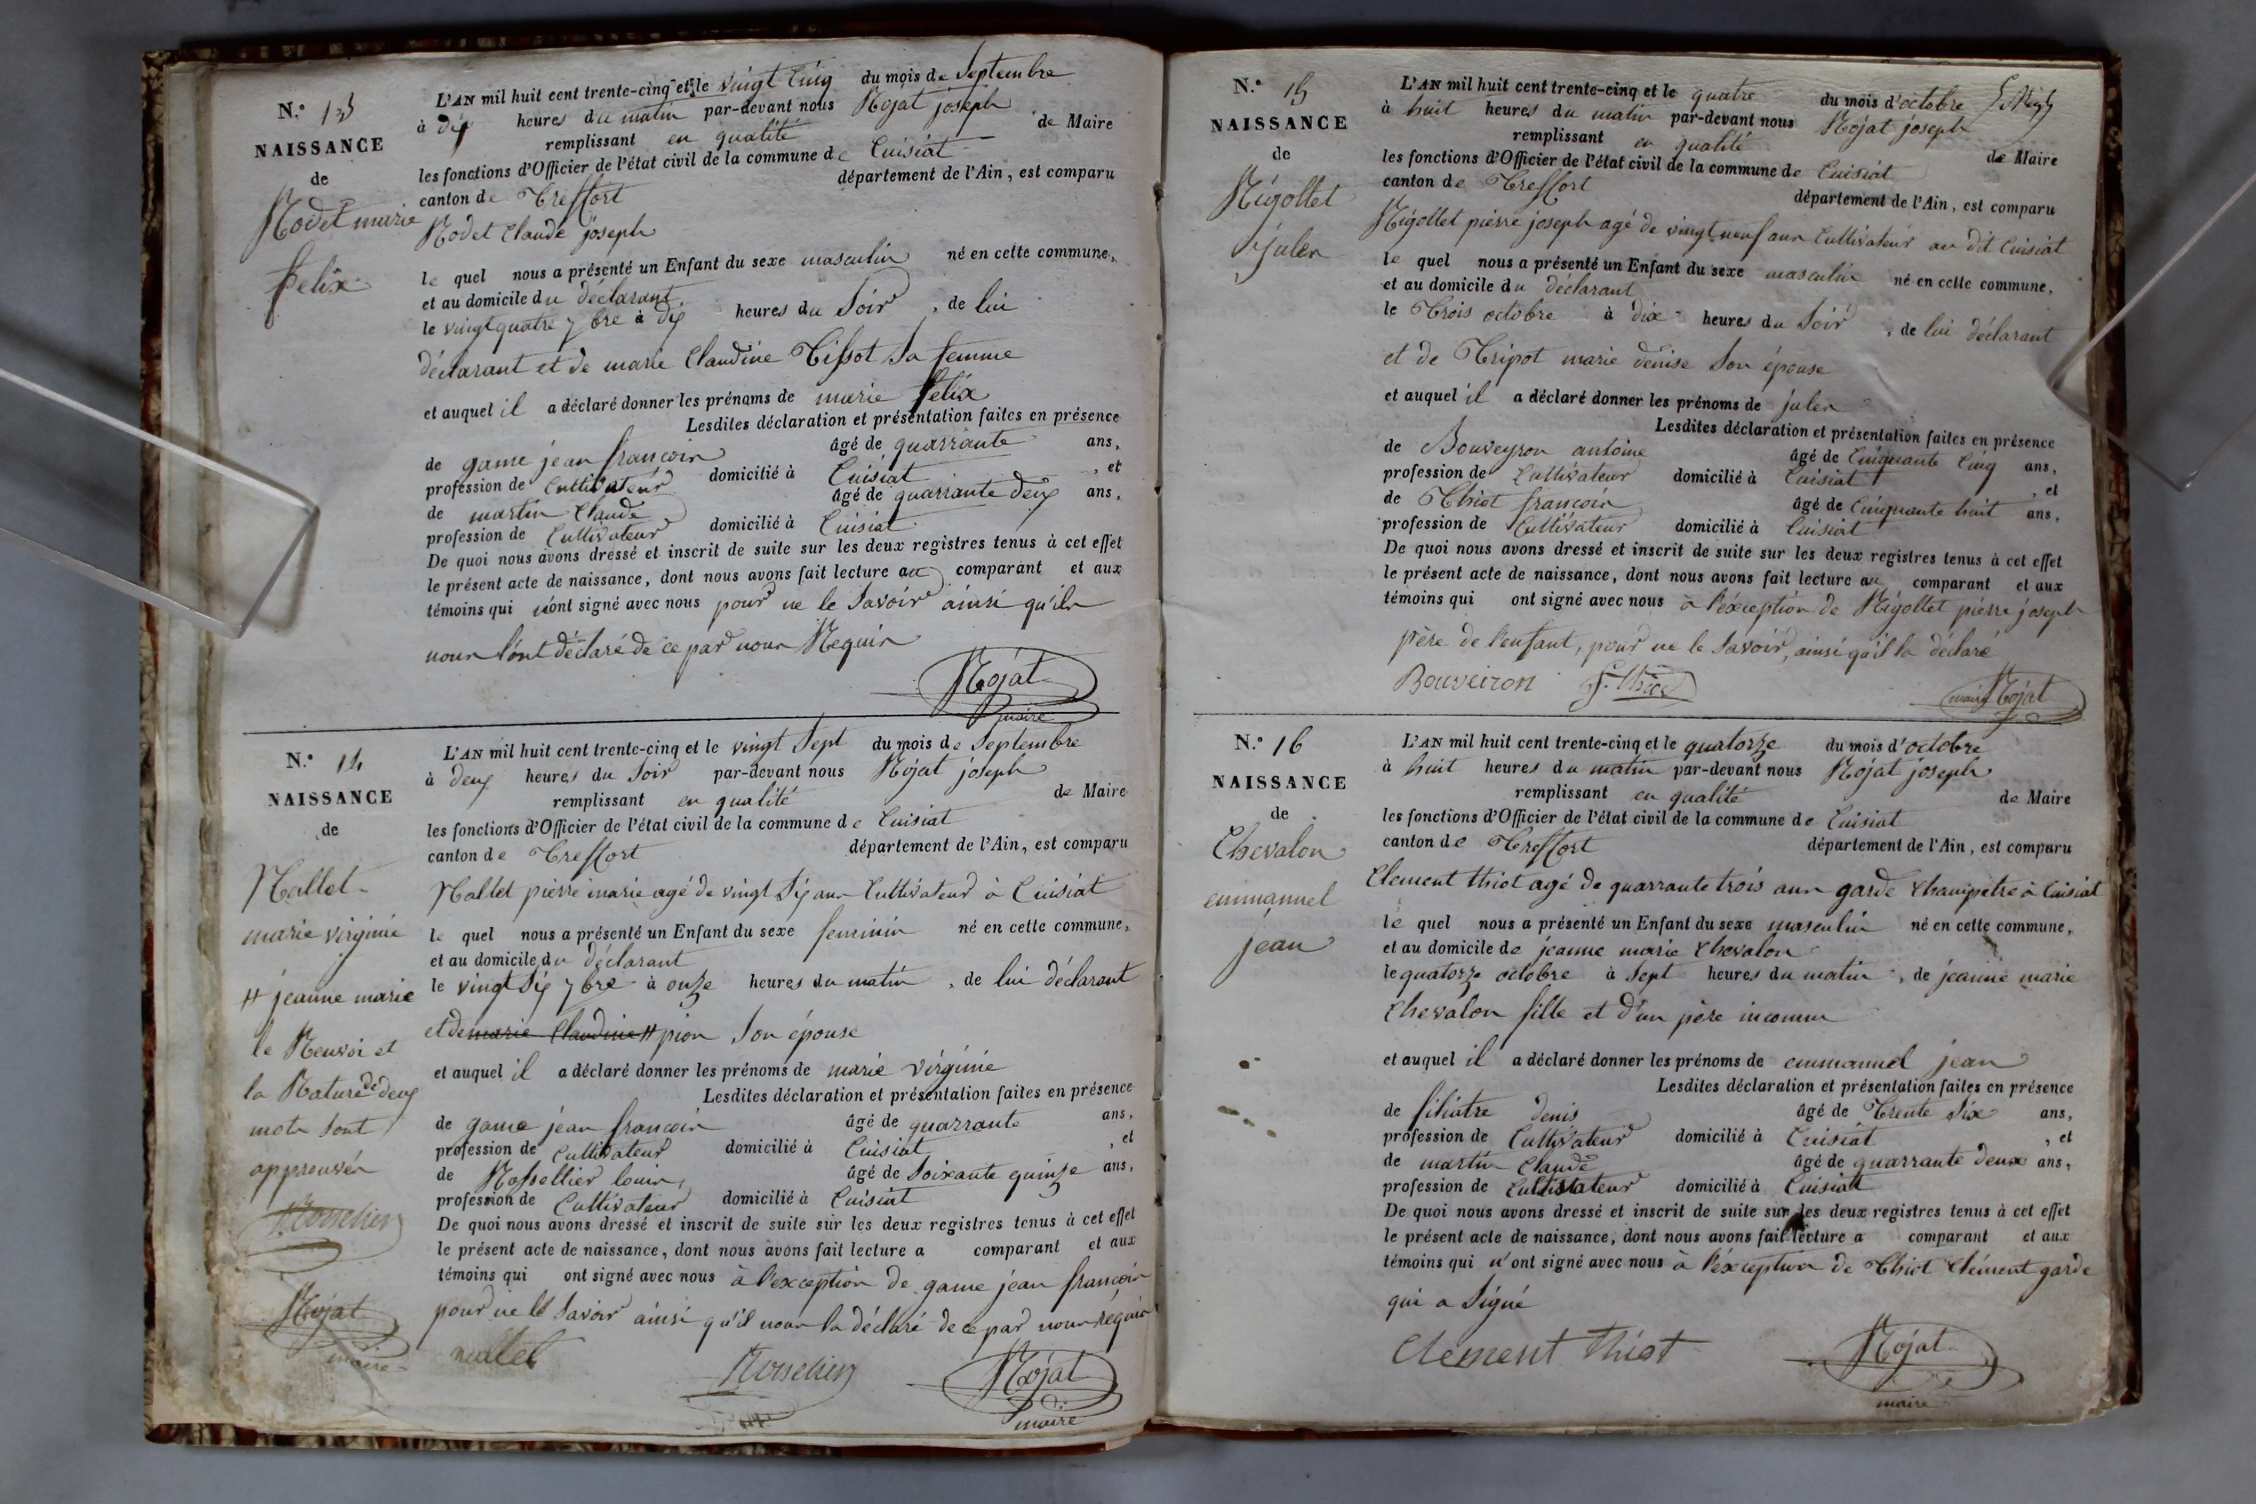 N.° 13
NAISSANCE
de
Rodet marie
felix
L'AN mil huit cent trente-cinq et le vingt cinq du mois de Septembre
à dix heures du matin par-devant nous Rojat joseph
remplissant en qualité de Maire
les fonctions d'Officier de l'état civil de la commune de Cuisiat
canton de Treffort département de l'Ain, est comparu
Rodet Claude joseph
le quel nous a présenté un Enfant du sexe masculin né en cette commune,
et au domicile du déclarant
le vingt quatre 7bre à dix heures du Soir, de lui
déclarant et de marie Claudine Tissot Sa femme
et auquel il a déclaré donner les prénoms de marie felix
Lesdites déclaration et présentation faites en présence
de game jean francois âgé de quarrante ans,
profession de Cultivateur domicilié à Cuisiat, et
de martin Claude âgé de quarrante deux ans,
profession de Cultivateur domicilié à Cuisiat
De quoi nous avons dressé et inscrit de suite sur les deux registres tenus à cet effet
le présent acte de naissance, dont nous avons fait lecture au comparant et aux
témoins qui n'ont signé avec nous pour ne le Savoir ainsi qu'ils
nous l'ont déclaré de ce par nous Requis
Rojat
maire
N.° 14
NAISSANCE
de
Nallet
marie virginie
# jeanne marie
le Renvoi et
la Rature de deux
mots sont
approuvés
Rosselier
Rojat
maire
L'AN mil huit cent trente-cinq et le vingt Sept du mois de Septembre
à deux heures du Soir par-devant nous Rojat joseph
remplissant en qualité de Maire
les fonctions d'Officier de l'état civil de la commune de Cuisiat
canton de Treffort département de l'Ain, est comparu
Nallet pierre marie agé de vingt Six ans Cultivateur à Cuisiat
le quel nous a présenté un Enfant du sexe feminin né en cette commune,
et au domicile du déclarant
le vingt Six 7bre à onze heures du matin, de lui déclarant
et de marie Claudine # pion Son épouse
et auquel il a déclaré donner les prénoms de marie virginie
Lesdites déclaration et présentation faites en présence
de game jean francois âgé de quarrante ans,
profession de Cultivateur domicilié à Cuisiat, et
de Rossellier louis, âgé de Soixante quinze ans,
profession de Cultivateur domicilié à Cuisiat
De quoi nous avons dressé et inscrit de suite sur les deux registres tenus à cet effet
le présent acte de naissance, dont nous avons fait lecture a comparant et aux
témoins qui ont signé avec nous à l'exception de game jean francois
pour ne le Savoir ainsi qu'il nous la déclaré de ce par nous requis
nallet
Rosselier
Rojat
maire
N.° 15
NAISSANCE
de
Nigollet
jules
L'AN mil huit cent trente-cinq et le quatre du mois d'octobre
à huit heures du matin par-devant nous Rojat joseph
remplissant en qualité de Maire
les fonctions d'Officier de l'état civil de la commune de Cuisiat
canton de Treffort département de l'Ain, est comparu
Nigollet pierre joseph agé de vingt neuf ans Cultivateur au dit Cuisiat
le quel nous a présenté un Enfant du sexe masculin né en cette commune,
et au domicile du déclarant
le Trois octobre à dix heures du Soir, de lui déclarant
et de Tripot marie denise Son épouse
et auquel il a déclaré donner les prénoms de jules
Lesdites déclaration et présentation faites en présence
de Bouveyron antoine âgé de Cinquante Cinq ans,
profession de Cultivateur domicilié à Cuisiat, et
de Thiot francois âgé de Cinquante huit ans,
profession de Cultivateur domicilié à Cuisiat
De quoi nous avons dressé et inscrit de suite sur les deux registres tenus à cet effet
le présent acte de naissance, dont nous avons fait lecture au comparant et aux
témoins qui ont signé avec nous à l'éxception de Nigollet pierre joseph
père de l'enfant, pour ne le Savoir, ainsi qu'il la déclaré
Bouveiron
f. thiot
maire Rojat
N.° 16
NAISSANCE
de
Chevalon
emmanuel
jean
L'AN mil huit cent trente-cinq et le quatorze du mois d'octobre
à huit heures du matin par-devant nous Rojat joseph
remplissant en qualité de Maire
les fonctions d'Officier de l'état civil de la commune de Cuisiat
canton de Treffort département de l'Ain, est comparu
Clement thiot agé de quarrante trois ans garde Champetre à Cuisiat
le quel nous a présenté un Enfant du sexe masculin né en cette commune,
et au domicile de jeanne marie Chevalon
le quatorze octobre à Sept heures du matin, de jeanne marie
Chevalon fille et d'un père inconnu
et auquel il a déclaré donner les prénoms de emmanuel jean
Lesdites déclaration et présentation faites en présence
de filiatre denis âgé de Trente Six ans,
profession de Cultivateur domicilié à Cuisiat, et
de martin Claude âgé de quarrante deux ans,
profession de Cultivateur domicilié à Cuisiat
De quoi nous avons dressé et inscrit de suite sur les deux registres tenus à cet effet
le présent acte de naissance, dont nous avons fait lecture a comparant et aux
témoins qui n'ont signé avec nous à l'éxception de Thiot Clément garde
qui a Signé
Clement Thiot
Rojat
maire